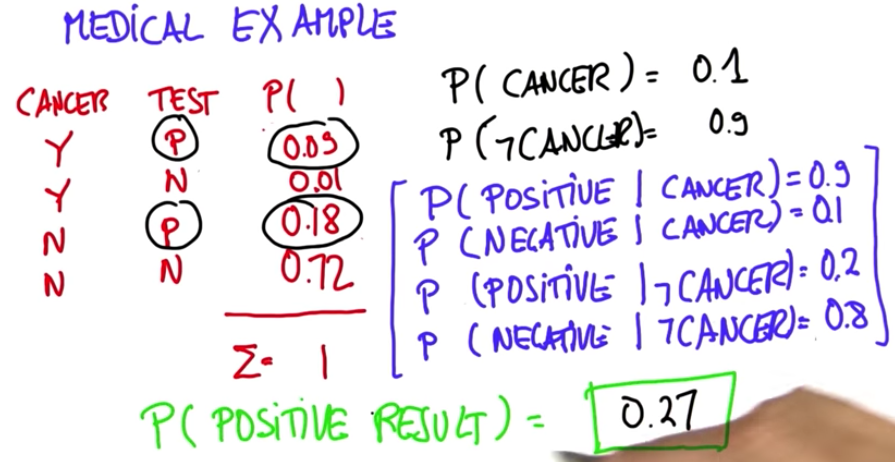 MEDICAL EXAMPLE
CANCER TEST P( )
Y P 0.09
Y N 0.01
N P 0.18
N N 0.72
Σ= 1
P( CANCER ) = 0.1
P (¬CANCER)= 0.9
P( POSITIVE | CANCER) = 0.9
P (NEGATIVE | CANCER) = 0.1
P (POSITIVE | ¬CANCER)= 0.2
P (NEGATIVE | ¬CANCER)= 0.8
P( POSITIVE RESULT) = 0.27